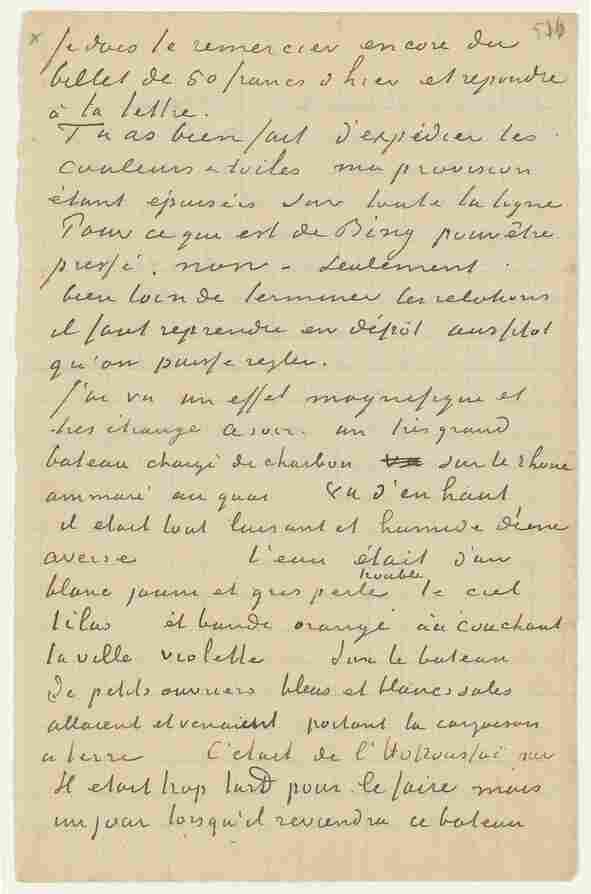 516
Je dois te remercier encore du
billet de 50 francs d hier et repondre
à ta lettre.
Tu as bien fait d'expédier les
couleurs et toiles ma provision
étant épuisée sur toute la ligne
Pour ce que est de Bing pour être
pressé, non – seulement
bien loin de terminer les relations
il faut reprendre en dépôt aussitot
qu'on puisse regler.
J'ai vu un effet magnifique et
tres etrange ce soir. un très grand
bateau chargé de charbon sur le Rhone
ammaré au quai Vu d'en haut
il etait tout luisant et humide d'une
averse L'eau était d'un
blanc jaune et gris perle trouble le ciel
lilas et bande orangé au couchant
la ville violette Sur le bateau
de petits ouvriers bleus et blancs sales
allaient et venaient portant la cargaison
a terre C'etait de l'Hokousaï pur
Il etait trop tard pour le faire mais
un jour lorsqu'il reviendra ce bateau